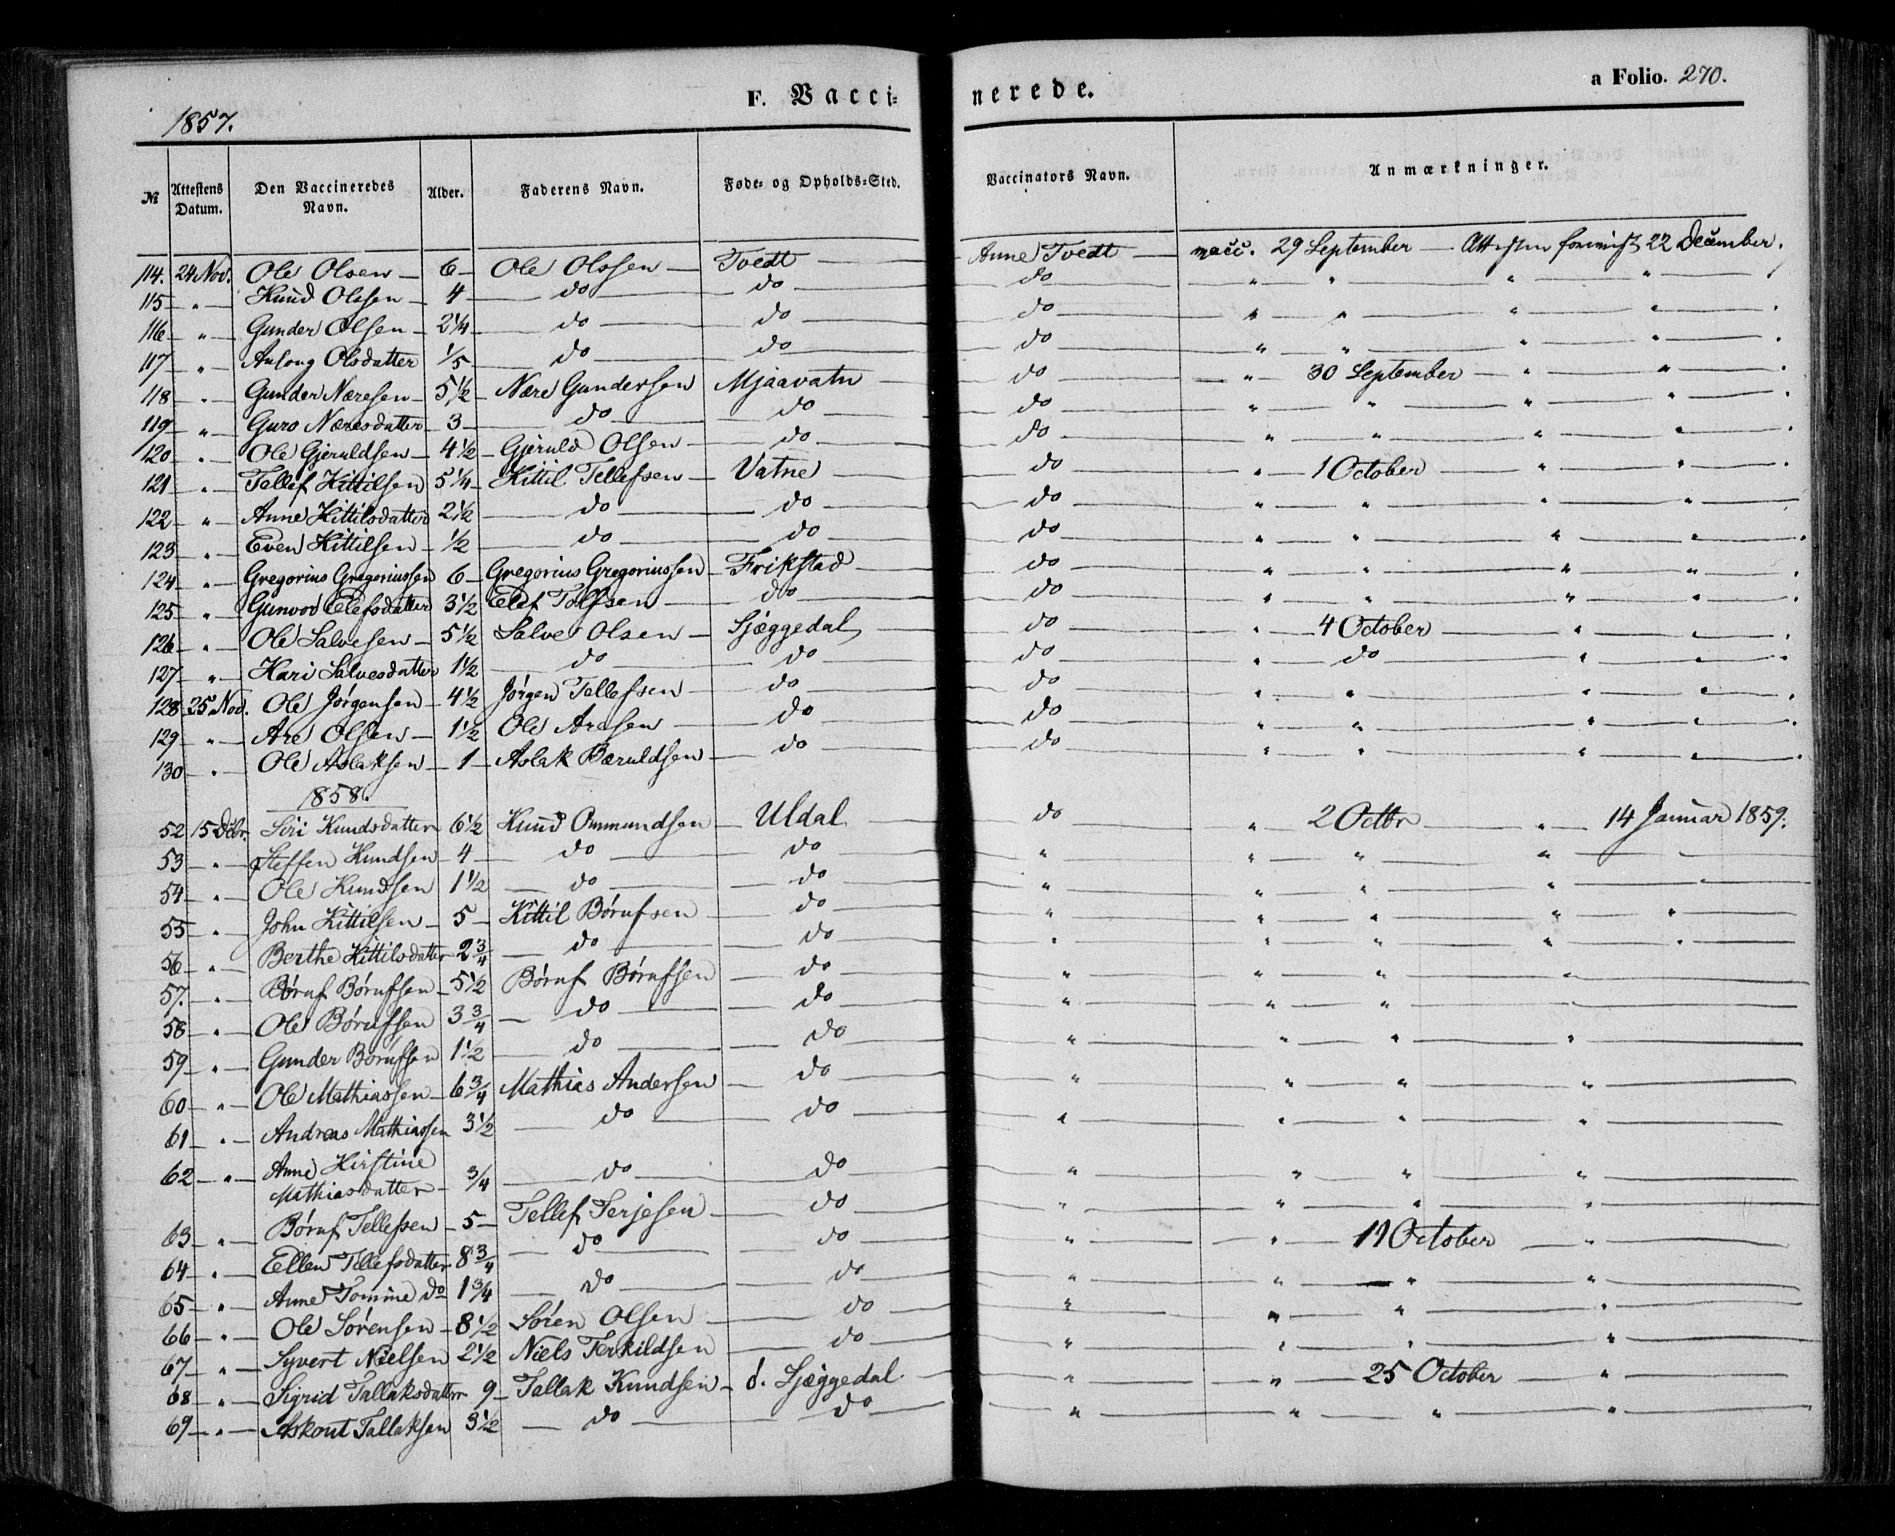 F. Vacci= nerede. a Folio. 270.
1857.
№ Attestens Datum. Den Vaccineredes Navn. Alder. Faderens Navn. Føde- og Opholds-Sted. Vaccinators Navn. Anmærkninger.
114. 24 Nov. Ole Olsen — 6 — Ole Olssen — Tvedt — Anne Tvedt — vacc. 29 September — Attesten 22 December.
115 " Knud Olssen — 4 — do — do — do — " " " "
116 " Gunder Olsen — 2 1/4 — do — do — do — " " " "
117 " Aslong Olsdatter 1/5 — do — do — do — " " " "
118 " Gunder Næresen — 5 1/2 — Nære Gundersen — Mjaavatn — do — " 30 September — " "
119 " Guro Næresdatter — 3 — do — do — do — " " " "
120 " Ole Gjeruldsen — 4 1/2 — Gjeruld Olsen — do — do — " " " "
121 " Tellef Kittilsen 5 1/4 — Kittil Tellefsen — Vatne — do — " 1 October — " "
122 " Anne Kittilsdatter 2 1/2 — do — do — do — " " " "
123 " Even Kittilsen — 1/2 — do — do — do — " " " "
124 " Gregorius Gregoriussen 6 — Gregorius Gregoriussen — Frikstad — do — " " " "
125 " Gunvor Elefsdatter 3 1/2 Elef Tolfsen — do — do — " " " "
126 " Ole Salvesen — 5 1/2 Salve Olsen — Sjæggedal — do — " 4 October — " "
127 " Kari Salvesdatter 1 1/2 — do — do — do — " do — " "
128 25 Nov. Ole Jørgensen — 4 1/2 Jørgen Tellefsen — do — do — " " " "
129 " Are Olsen — 1 1/2 Ole Aresen — do — do — " " " "
130 " Ole Aslaksen — 1 — Aslak Bæruldsen — do — do — " " " "
1858.
52 15 Dcbr. Siri Knudsdatter 6 1/2 Knud Ommundsen — Uldal — do — " 2 Octbr — " 14 Januar 1859.
53 " Steffen Knudsen 4 — do — do — " " " "
54 " Ole Knudsen 1 1/2 — do — do — " " " "
55 " John Kittilsen — 5 — Kittil Børufsen — do — " " " " "
56 " Berthe Kittilsdatter 2 3/4 — do — do — " " " " "
57. " Børuf Børufsen — 5 1/2 Børuf Børufsen — do — " " " "
58 " Ole Børufsen 3 3/4 — do — do — " " "
59 " Gunder Børufsen 1 1/2 — do — do — " " " "
60 " Ole Mathiassen — 6 3/4 Mathias Andersen — do — " " " "
61 " Andreas Mathiassen 3 1/2 — do — do — " " " "
62 " Anne Kirstine
Mathiasdatter — 3/4 — do — do — " " " "
63 " Børuf Tellefsen — 5 — Tellef Terjesen — do — " " " "
64 " Ellen Tellefsdatter 8 3/4 — do — do — " " 11 October — "
65 " Anne Tomine do 1 3/4 — do — do — " " " "
66 " Ole Sørensen — 8 1/2 Søren Olsen — do — " " " "
67 " Syvert Nielsen 2 1/2 Niels Terkildsen — do — " " " "
68 " Sigrid Tallaksdatter 9 — Tallak Knudsen — d. Sjæggedal — " " 25 October — "
69 " Askout Tallaksen 3 1/2 — do — do — " " " "